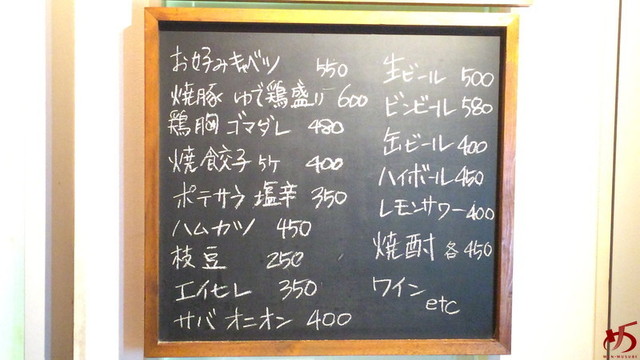 お好みキャベツ 550
焼豚 ゆで鶏盛り 600
鶏胸 ゴマダレ 480
焼餃子 5ケ 400
ポテサラ 塩辛 350
ハムカツ 450
枝豆 250
エイヒレ 350
サバ オニオン 400
生ビール 500
ビンビール 580
缶ビール 400
ハイボール 450
レモンサワー 400
焼酎 各450
ワイン
etc